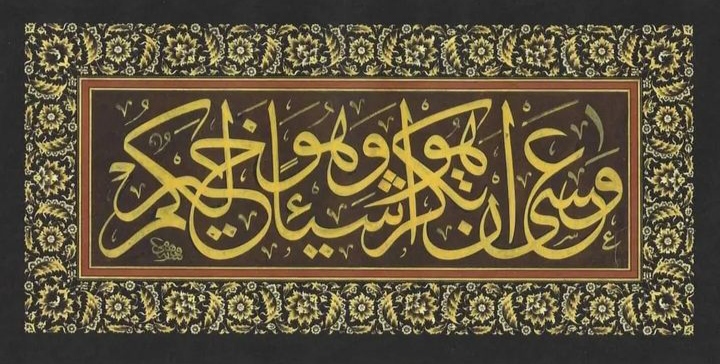 وعسى ان تكرهوا شيئا وهو خير لكم